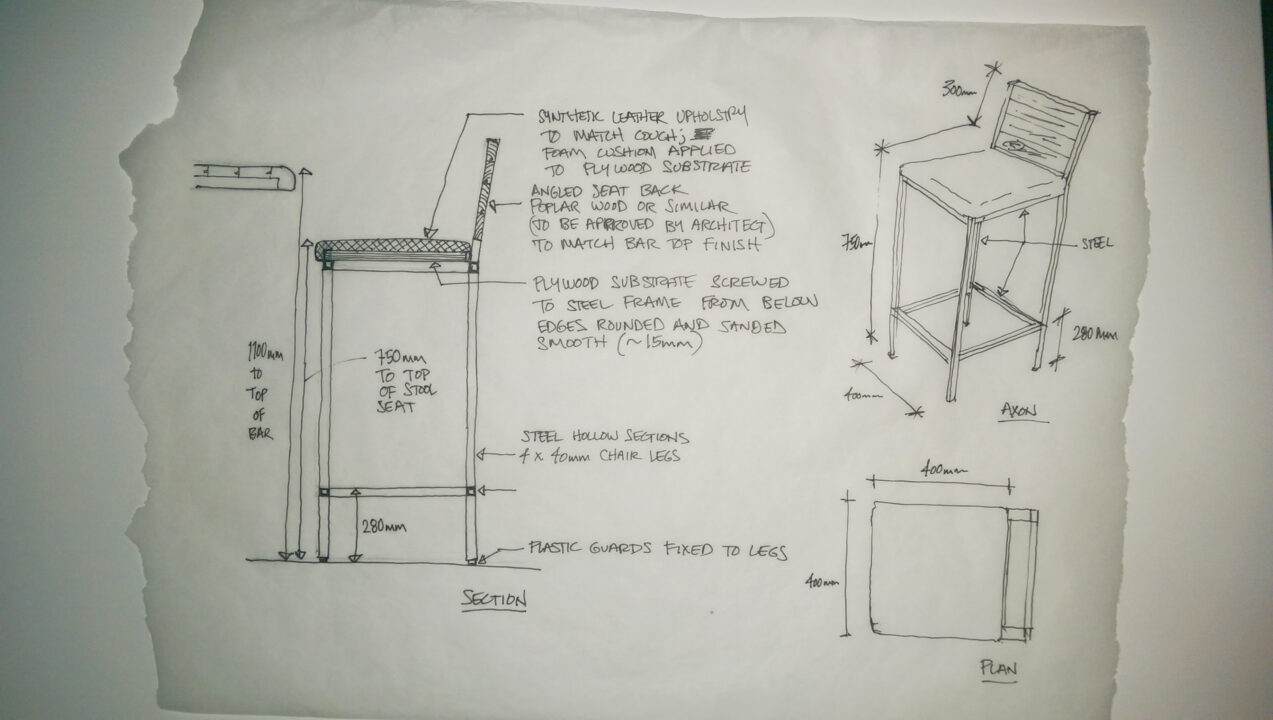 SYNTHETIC LEATHER UPHOLSTRY
TO MATCH COUCH;
FOAM CUSHION APPLIED
TO PLYWOOD SUBSTRATE
ANGLED SEAT BACK
POPLAR WOOD OR SIMILAR
(TO BE APPROVED BY ARCHITECT)
TO MATCH BAR TOP FINISH
PLYWOOD SUBSTRATE SCREWED
TO STEEL FRAME FROM BELOW
EDGES ROUNDED AND SANDED
SMOOTH (~15mm)
1100mm
TO
TOP
OF
BAR
750mm
TO TOP
OF STOOL
SEAT
STEEL HOLLOW SECTIONS
4 x 40mm CHAIR LEGS
280mm
PLASTIC GUARDS FIXED TO LEGS
SECTION
300mm
750mm
STEEL
280mm
400mm
AXON
400mm
400mm
PLAN